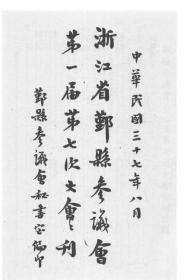 中華民國三十七年八月
浙江省鄞縣參議會
第一屆第七次大會會刊
鄞縣參議會秘書室編印